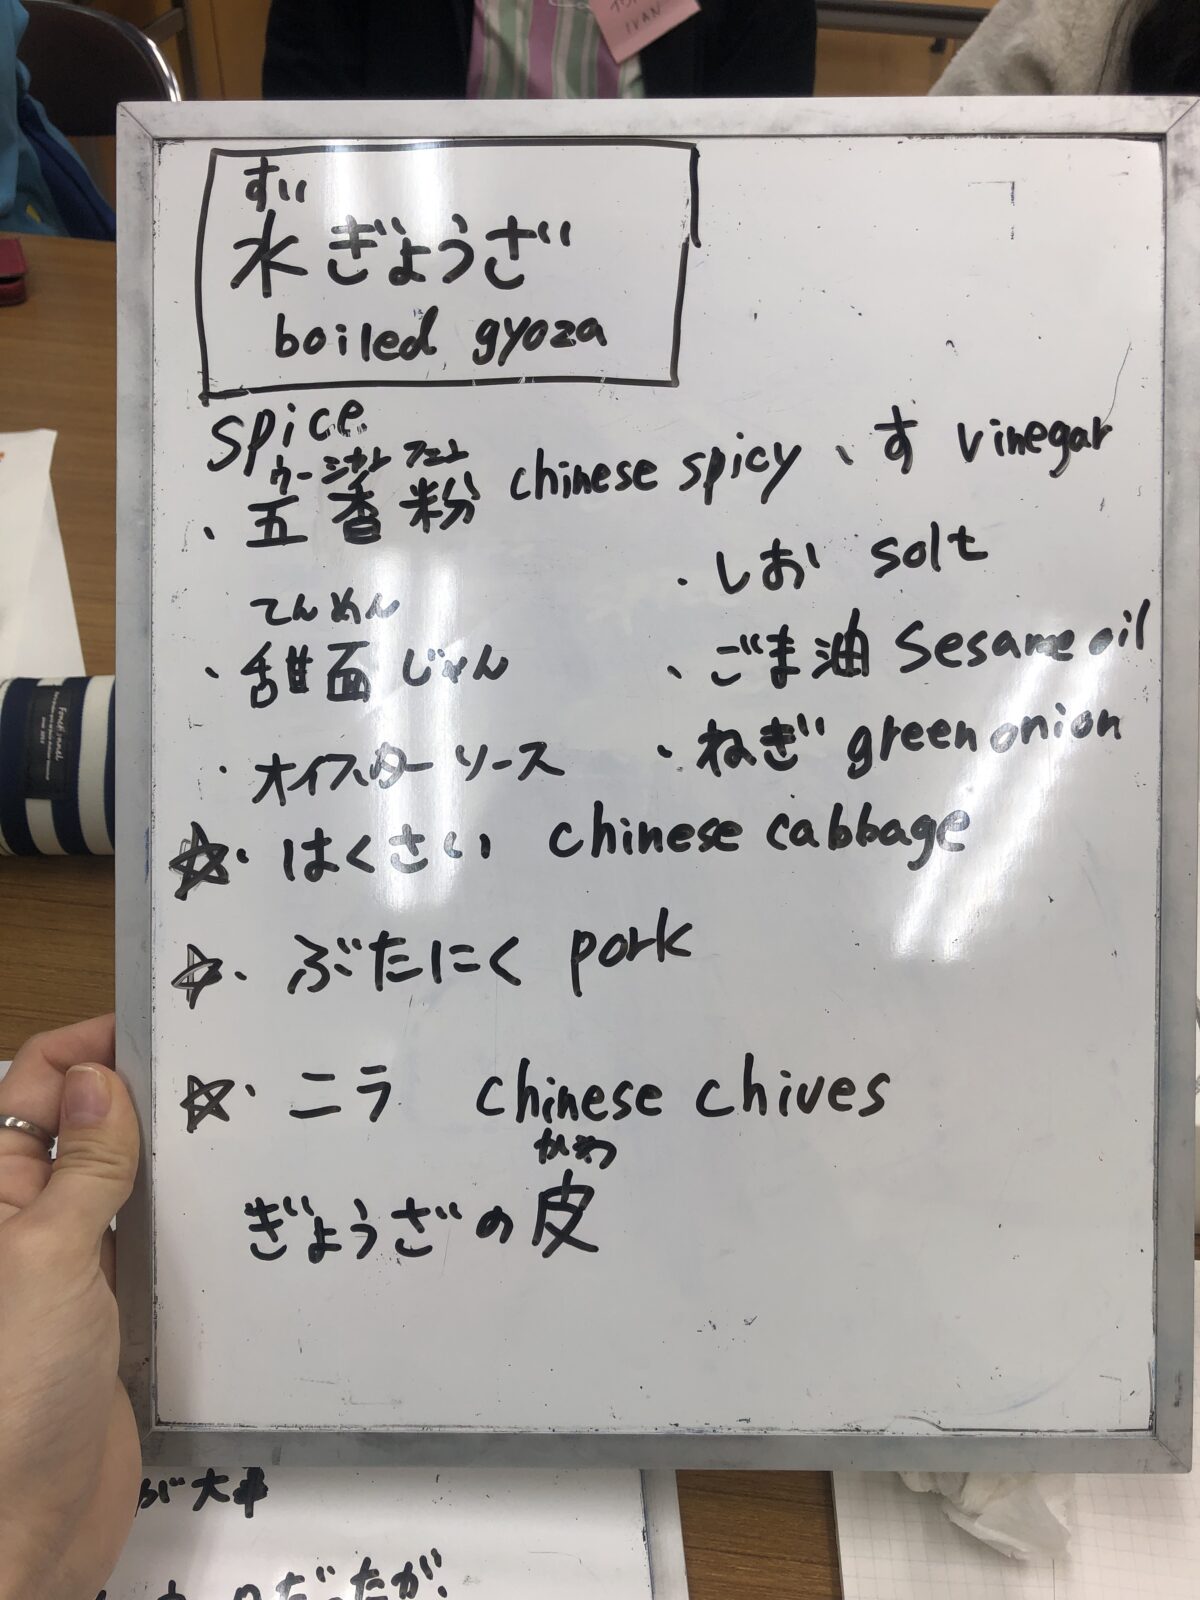 IVAN
すい
水ぎょうざ
boiled gyoza
spice
ウーシャン フェン
・五香粉 chinese spicy
、す vinegar
・しお solt
てんめん
・甜面じゃん
・ごま油 sesame oil
・オイスターソース
・ねぎ green onion
☆・はくさい chinese cabbage
☆・ぶたにく pork
☆・ニラ chinese chives
かわ
ぎょうざの皮
Fonctionnel